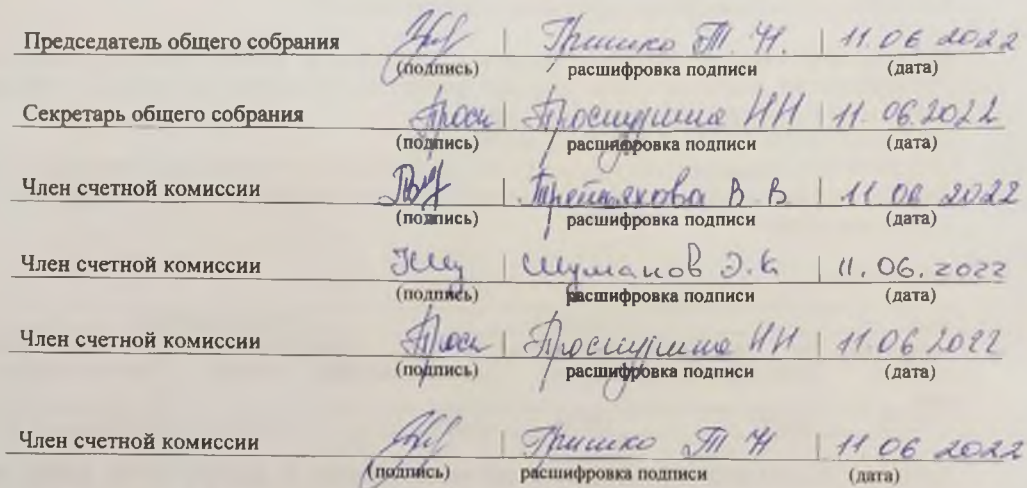 Председатель общего собрания | Гришко Т. Н. | 11.06 2022
(подпись) расшифровка подписи (дата)
Секретарь общего собрания | НН | 11.06.2022
(подпись) расшифровка подписи (дата)
Член счетной комиссии | В. В | 11 06 2022
(подпись) расшифровка подписи (дата)
Член счетной комиссии | Шуманов Э.К | 11.06.2022
(подпись) расшифровка подписи (дата)
Член счетной комиссии | НН | 11.06 2022
(подпись) расшифровка подписи (дата)
Член счетной комиссии | Гришко Т Н | 11 06 2022
(подпись) расшифровка подписи (дата)